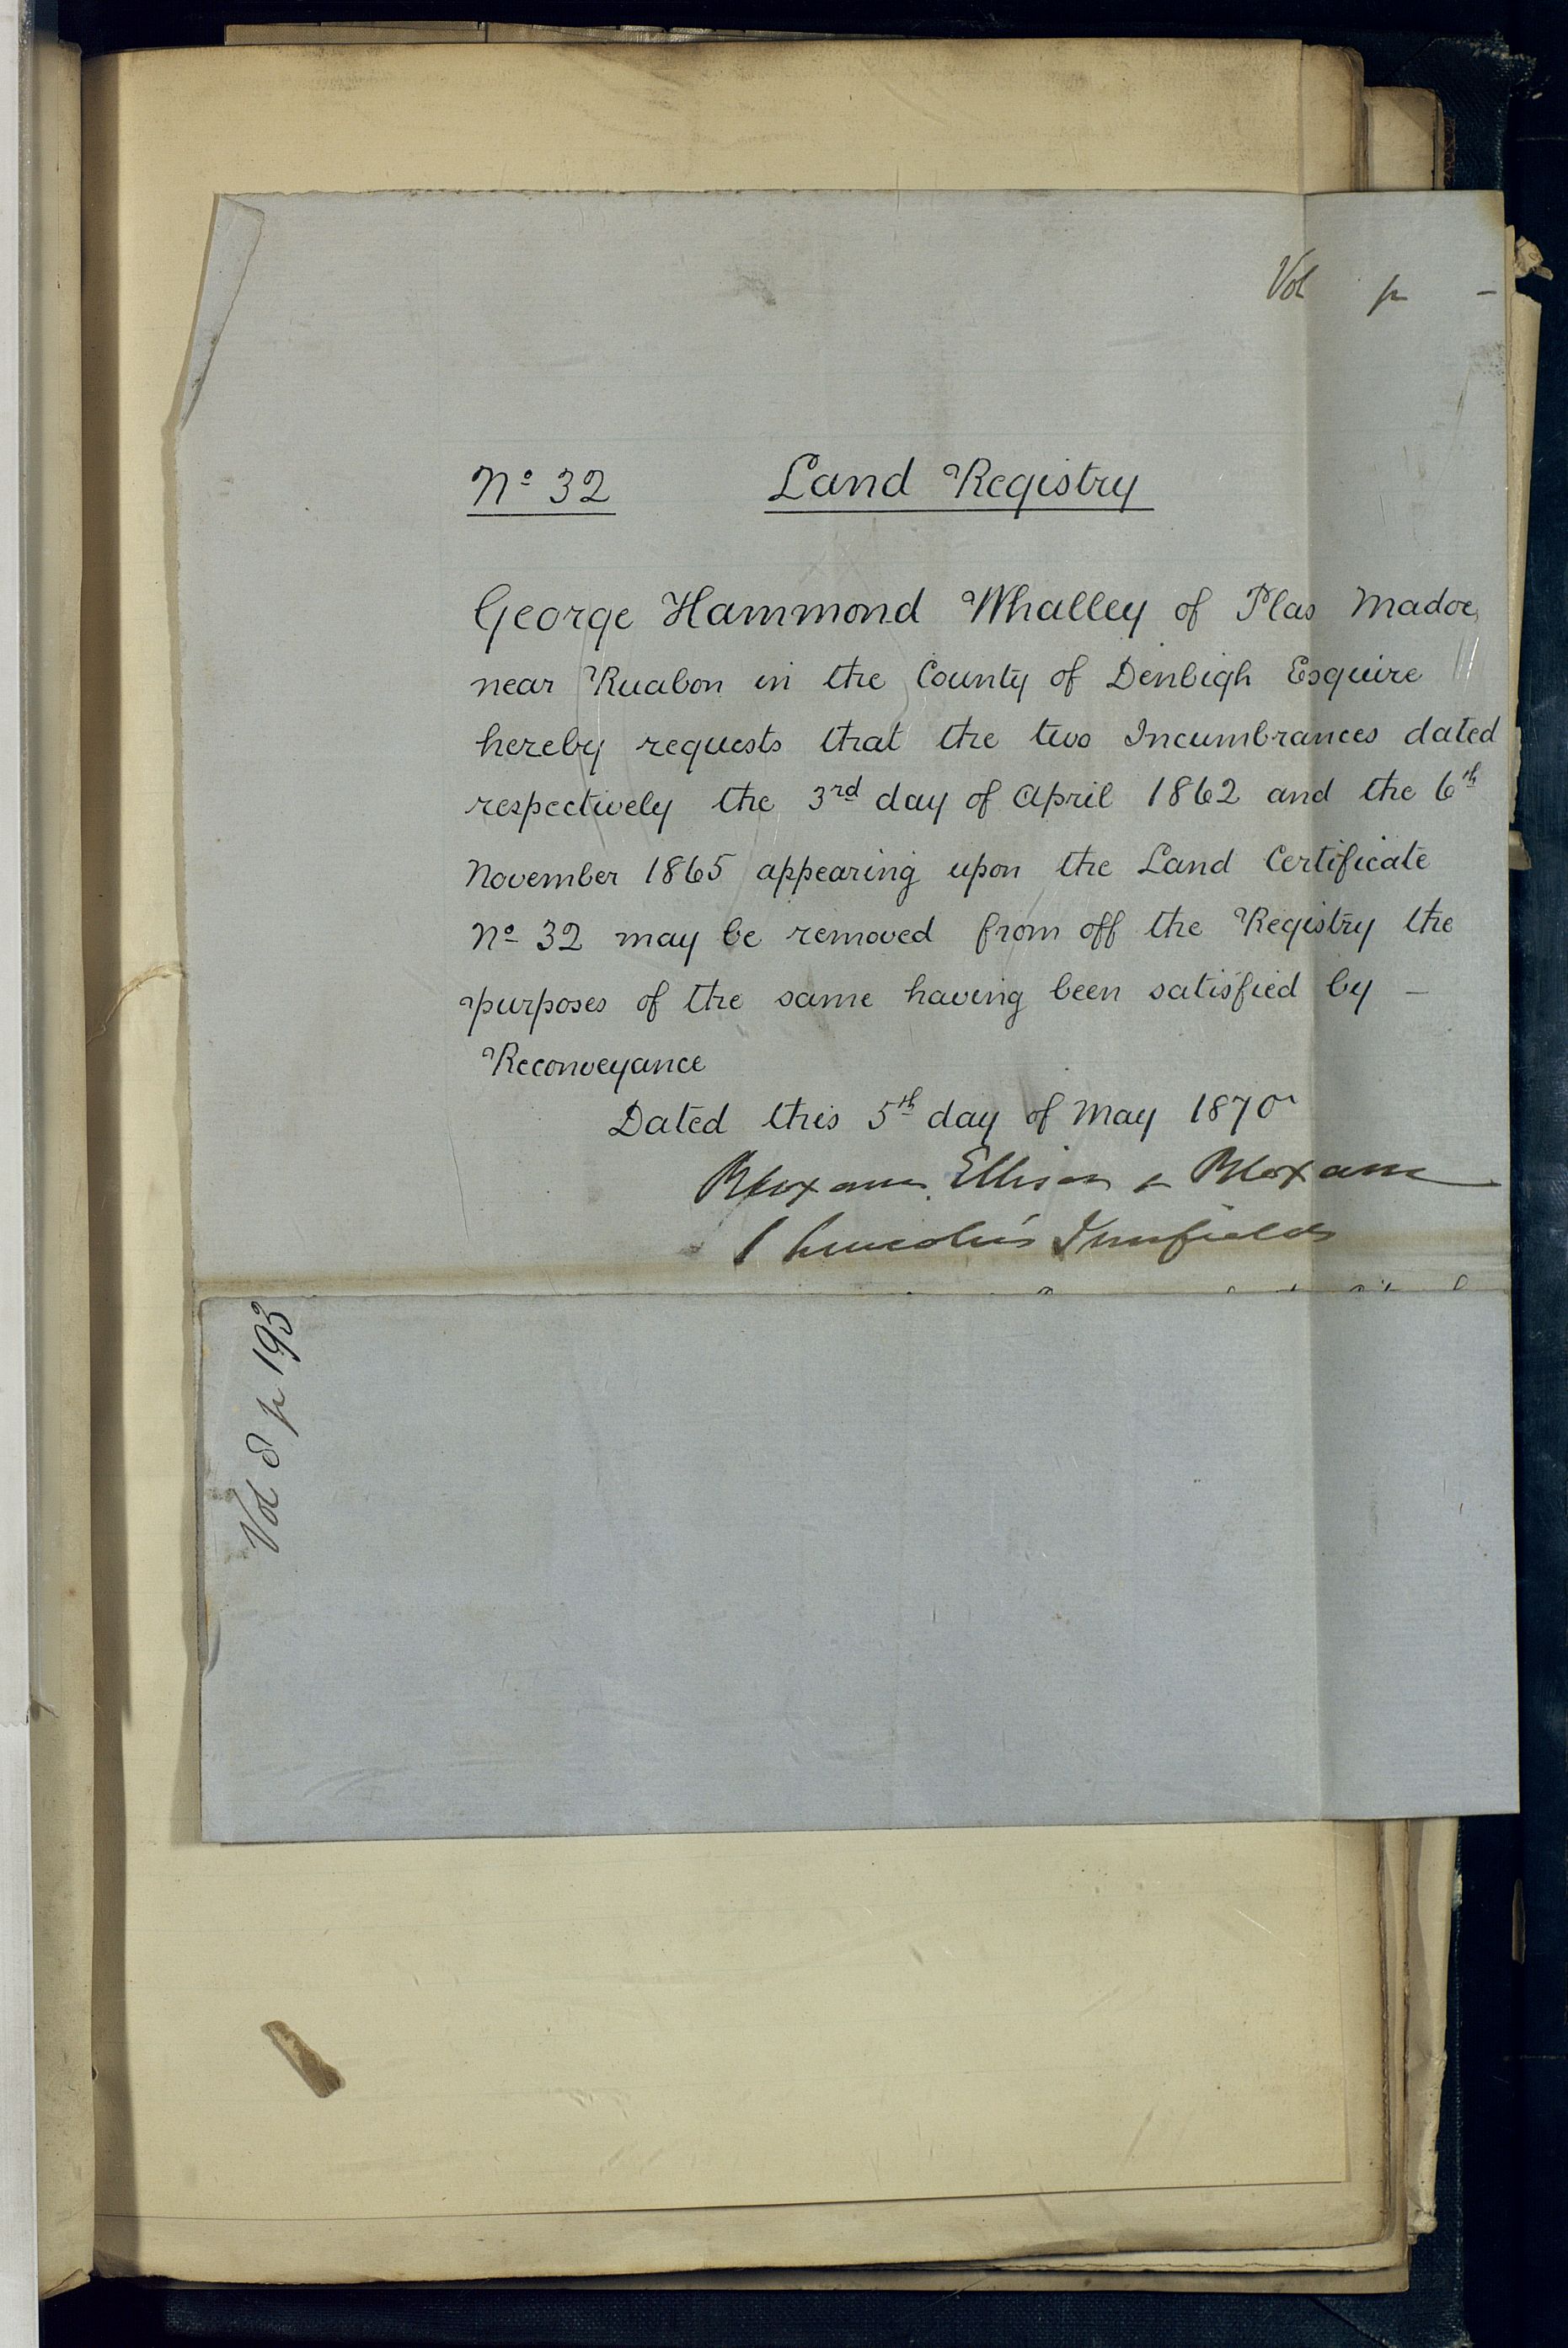 Vol p -
No 32 Land Registry
George Hammond Whalley of Plas Madoc,
near Ruabon in the County of Denbigh Esquire
hereby requests that the two Incumbrances dated
respectively the 3rd day of April 1862 and the 6th
November 1865 appearing upon the Land Certificate
No 32 may be removed from off the Registry the
purposes of the same having been satisfied by -
Reconveyance
Dated this 5th day of May 1870
Bloxam, Ellison & Bloxam
1 Lincoln's Inn fields
Vol 8 p 193